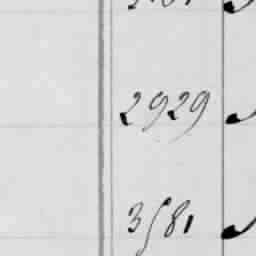 2929
3581